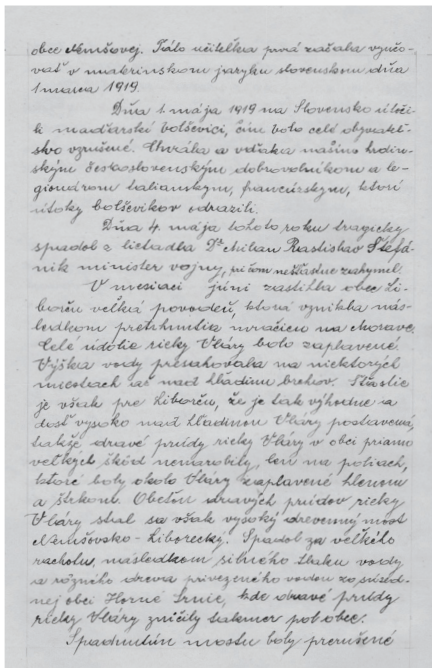 obce Nemšovej. Táto učiteľka prvá začala vyučo-
vať v materinskom jazyku slovenskom dňa
1 marca 1919.
Dňa 1. mája 1919 na Slovensko útoči-
li maďarskí bolševici, čím bolo celé obyvateľ-
stvo vzrušené. Chvála a vďaka našim hrdin-
ským československým dobrovolníkom a le-
gionárom talianskym, francúzskym, ktorí
útoky bolševikov odrazili.
Dňa 4. mája tohoto roku tragicky
spadol z lietadla Dr Milan Rastislav Štefá-
nik minister vojny, pri čom nešťastne zahynul.
V mesiaci júni zastihla obec Li-
borču veľká povodeň, ktorá vznikla nás-
ledkom pretrhnutia mračien na Morave.
Celé údolie rieky Vláry bolo zaplavené
Výška vody presahovala na niektorých
miestach až nad hladinu brehov. Šťastie
je však pre Liborču, že je tak výhodne a
dosť vysoko nad hladinou Vláry postavená,
takže dravé prúdy rieky Vláry v obci priamo
veľkých škôd nenarobily, len na poliach,
ktoré boly okolo Vláry zaplavené hlienom
a štrkom. Obeťou dravých prúdov rieky
Vláry stal sa však vysoký drevenný most
Nemšovsko-Liborecký. Spadol za veľkého
rachotu, následkom silného tlaku vody
a rôzného dreva privezeného vodou zo súsed-
nej obci Horné Srnie, kde dravé prúdy
rieky Vláry zničily takmer pol obec.
Spadnutím mostu boly prerušené